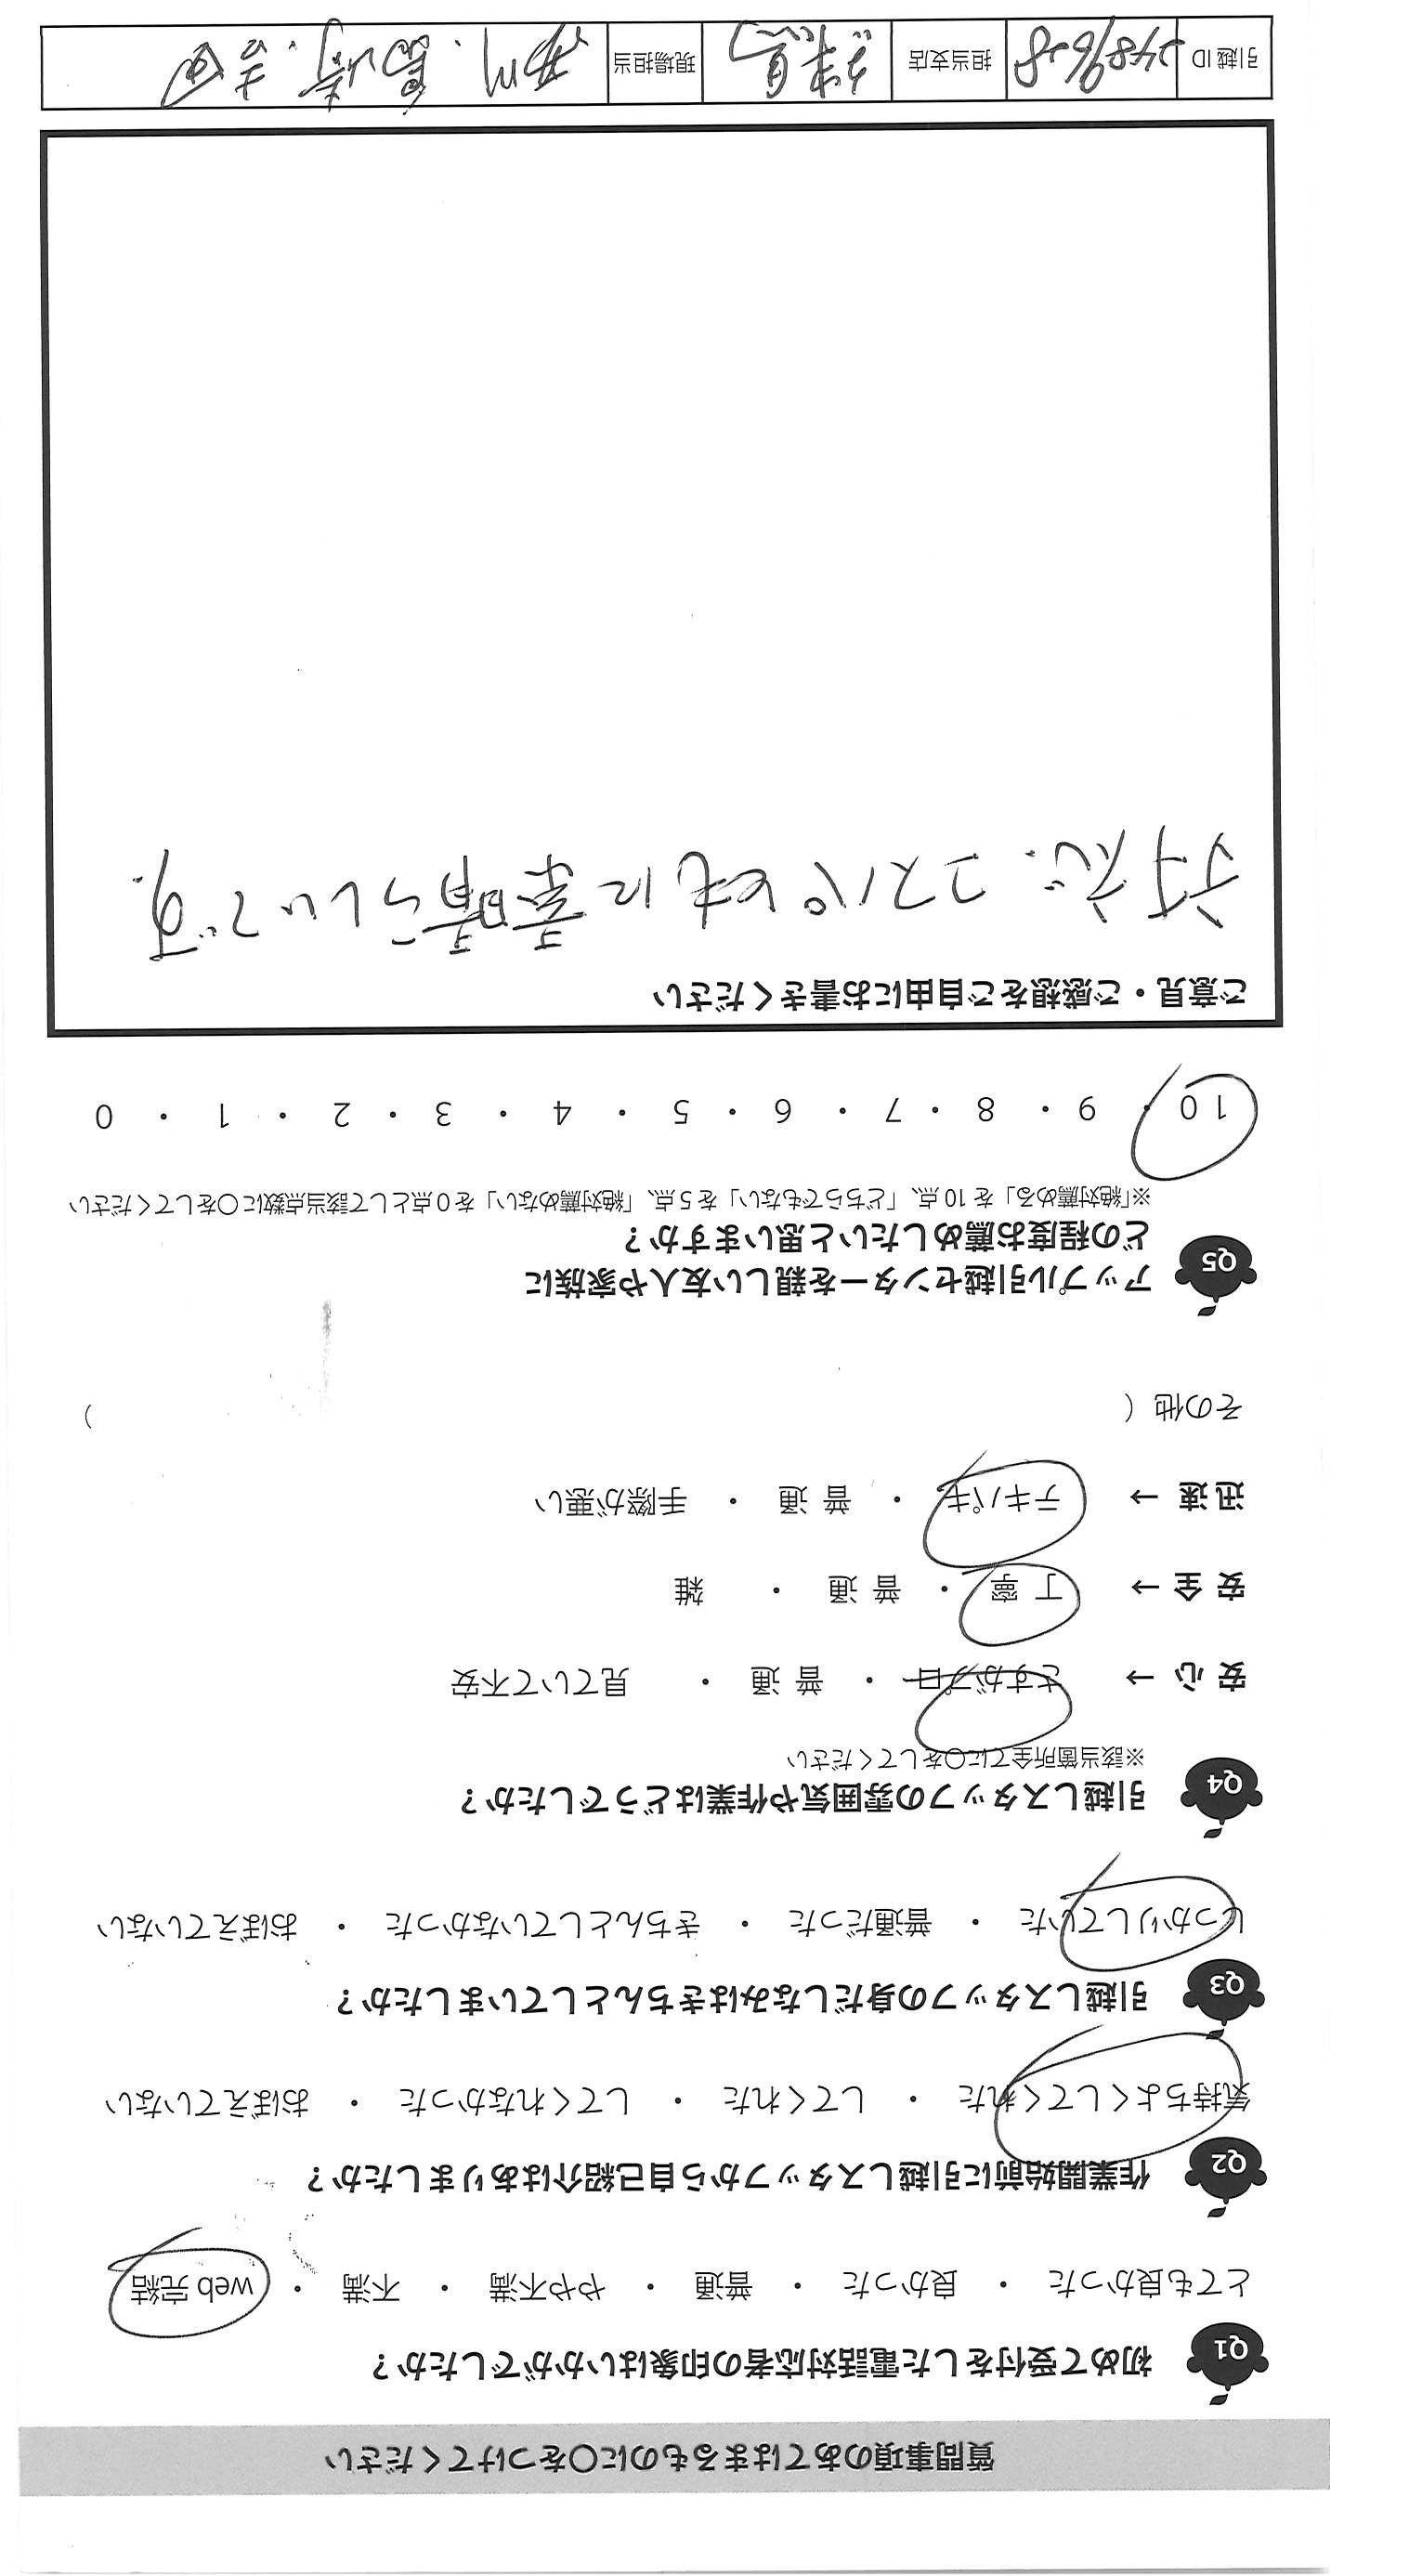 質問事項のあてはまるものに○をつけてください
Q1 初めて受付をした電話対応者の印象はいかがでしたか？
とても良かった ・ 良かった ・ 普通 ・ やや不満 ・ 不満 ・ web 完結
Q2 作業開始前に引越しスタッフから自己紹介はありましたか？
気持ちよくしてくれた ・ してくれた ・ してくれなかった ・ おぼえていない
Q3 引越しスタッフの身だしなみはきちんとしていましたか？
しっかりしていた ・ 普通だった ・ きちんとしていなかった ・ おぼえていない
Q4 引越しスタッフの雰囲気や作業はどうでしたか？
※該当箇所全てに○をしてください
安 心 → さすがプロ ・ 普 通 ・ 見ていて不安
安 全 → 丁 寧 ・ 普 通 ・ 雑
迅 速 → テキパキ ・ 普 通 ・ 手際が悪い
その他（ ）
Q5 アップル引越センターを親しい友人や家族に
どの程度お薦めしたいと思いますか？
※「絶対薦める」を 10 点、「どちらでもない」を 5 点、「絶対薦めない」を 0 点として該当点数に○をしてください
10 ・ 9 ・ 8 ・ 7 ・ 6 ・ 5 ・ 4 ・ 3 ・ 2 ・ 1 ・ 0
ご意見・ご感想をご自由にお書きください
対応、コスパともに素晴らしいです。
引越 ID 担当支店 現場担当